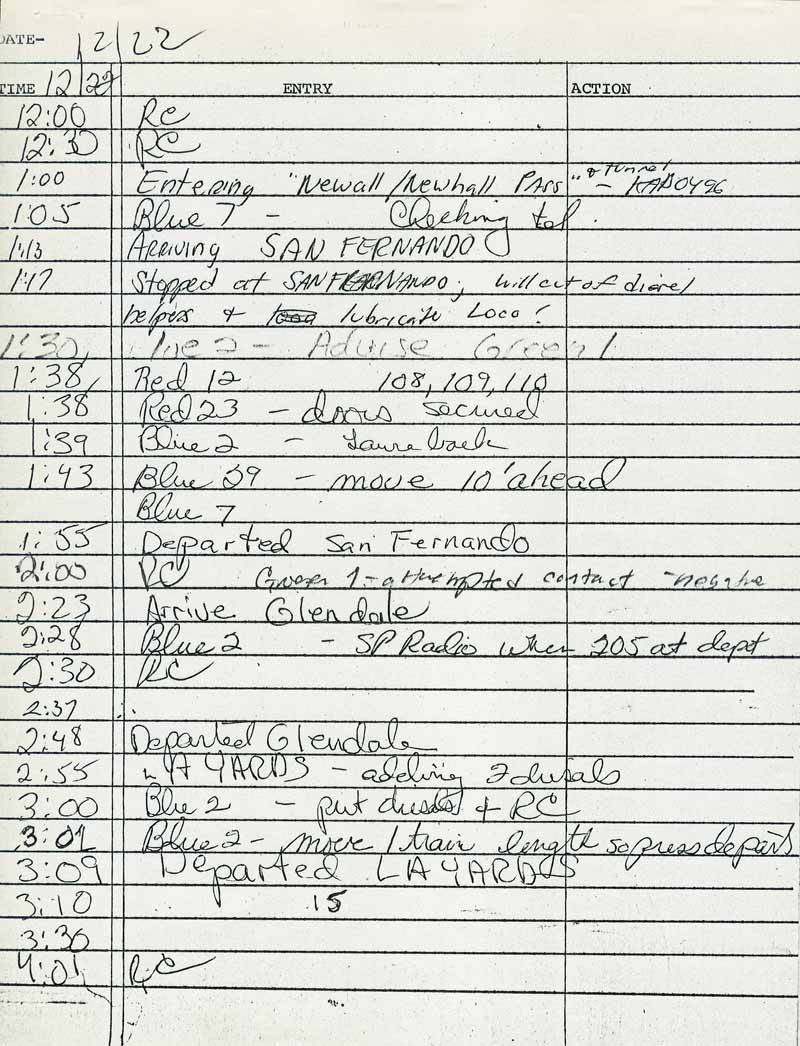 DATE- 12/22
TIME 12/22 ENTRY ACTION
12:00 RC
12:30 RC
1:00 Entering "Newall/Newhall Pass" & tunnel - KAD0496
1:05 Blue 7 - Checking tel.
1:13 Arriving SAN FERNANDO
1:17 Stopped at SAN FERNANDO; will cut of diesel
helpers & lubricate Loco!
1:30, Blue 2 - Advise Green 1
1:38, Red 12 108, 109, 110
1:38 Red 23 - doors secured
1:39 Blue 2 -
1:43 Blue 29 - move 10' ahead
Blue 7
1:55 Departed San Fernando
2:00 RC Green 1 - attempted contact - negative
2:23 Arrive Glendale
2:28 Blue 2 - SP Radio when 205 at dept
2:30 RC
2:37
2:48 Departed Glendale
2:55 LA YARDS - adding 2 diesals
3:00 Blue 2 - put diesel & RC
3:01 Blue 2 - move 1 train length so press departs
3:09 Departed LA YARDS
3:10 15
3:30
4:01 RC